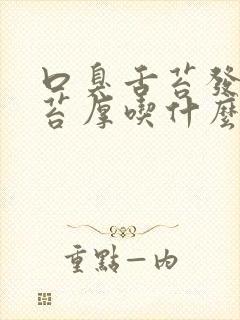 口臭舌苔發
苔厚喫什麼
重點一內